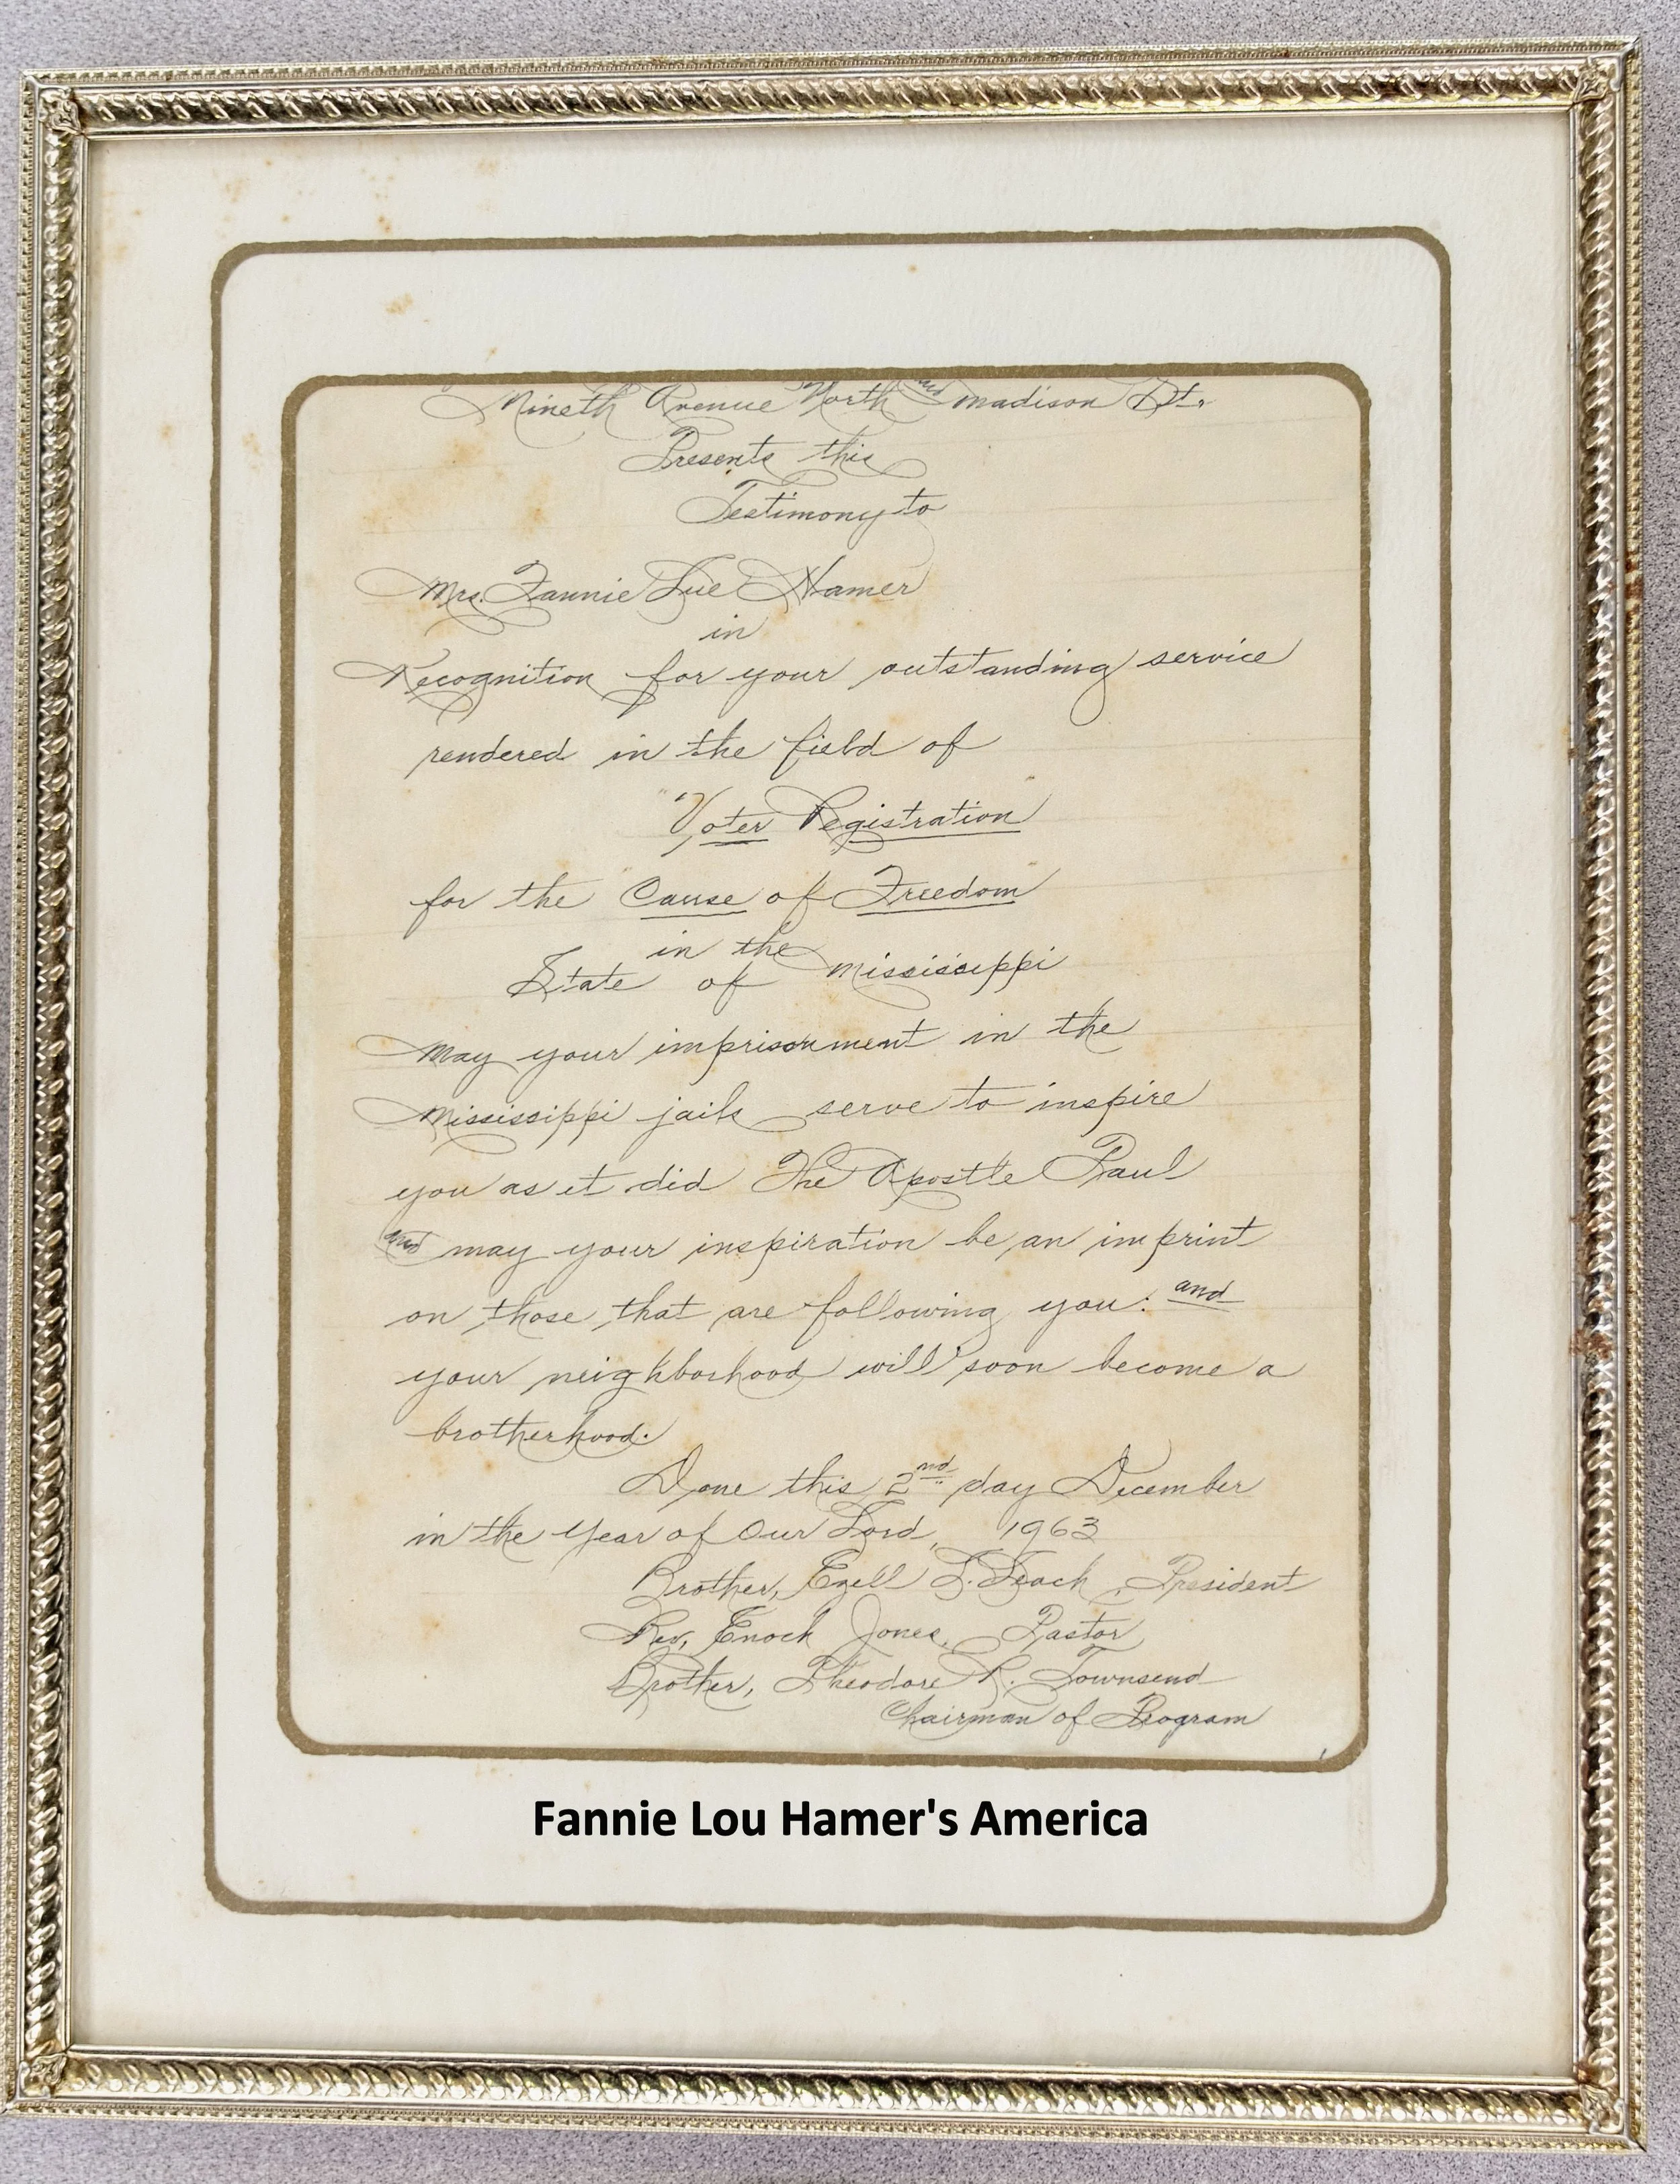 Nineth Avenue North and Madison St.
Presents this
Testimony to
Mrs. Fannie Lue Hamer
in
Recognition for your outstanding service
rendered in the field of
"Voter Registration"
for the Cause of Freedom
in the
State of Mississippi
May your imprisonment in the
Mississippi jails serve to inspire
you as it did The Apostle Paul
and may your inspiration be an imprint
on those that are following you: and
your neighborhood will soon become a
brotherhood.
Done this 2nd day December
in the Year of Our Lord, 1963
Brother, Ezell L. Leach, President
Rev, Enoch Jones, Pastor
Brother, Theodore R. Townsend
Chairman of Program
Fannie Lou Hamer's America